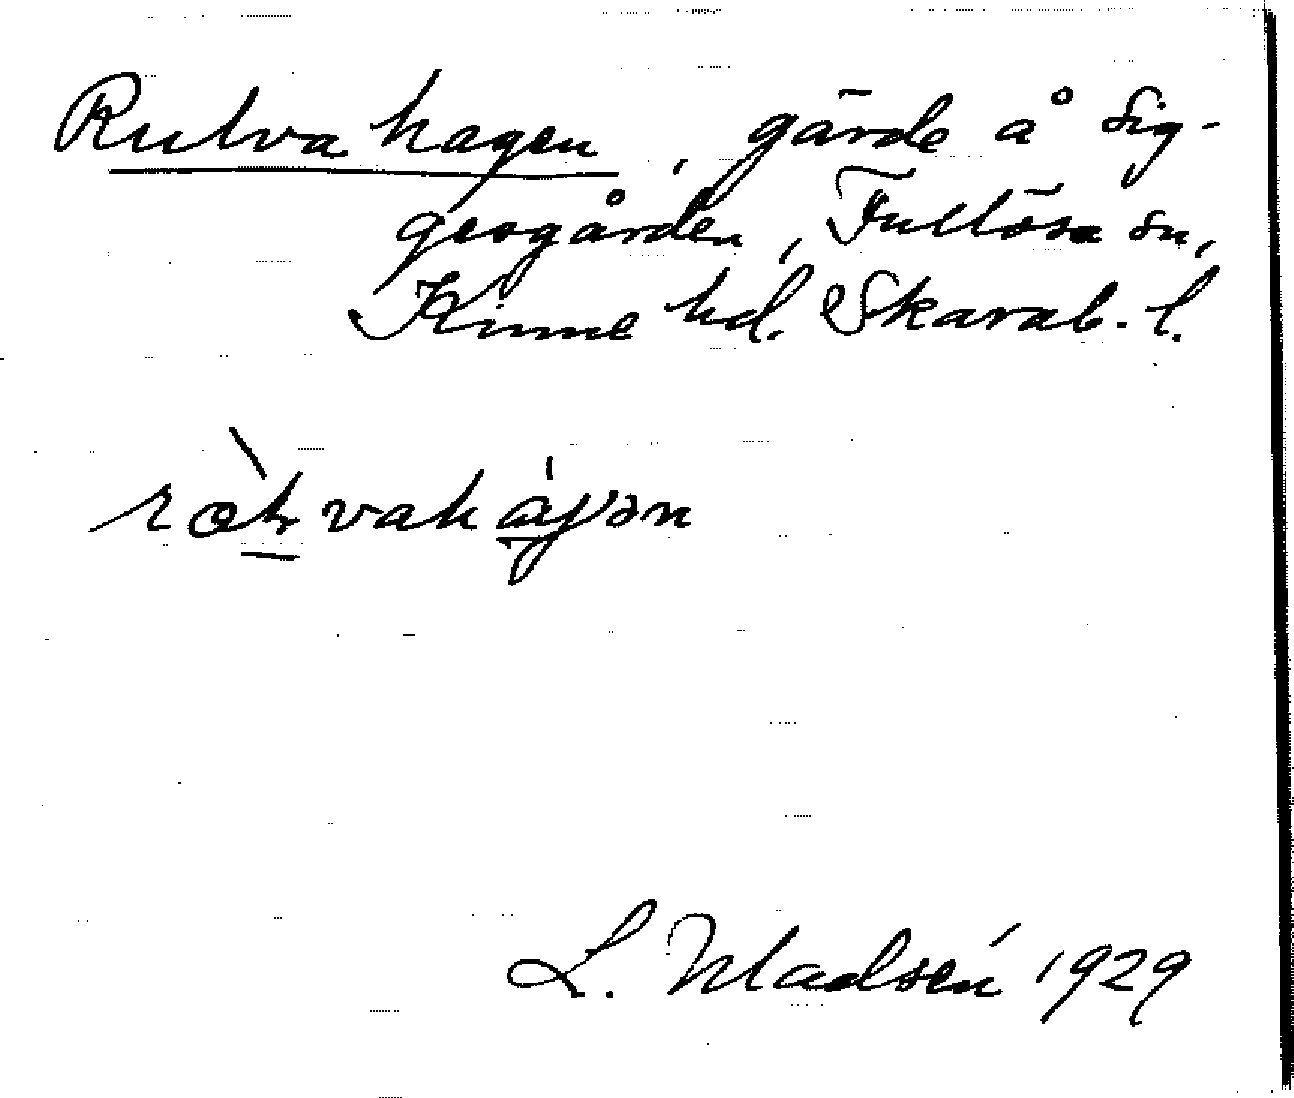 Rulva hagen, gärde å Sig-
gesgården, Fullösa sn,
Kinne hd. Skarab. l.
L. Madsén 1929